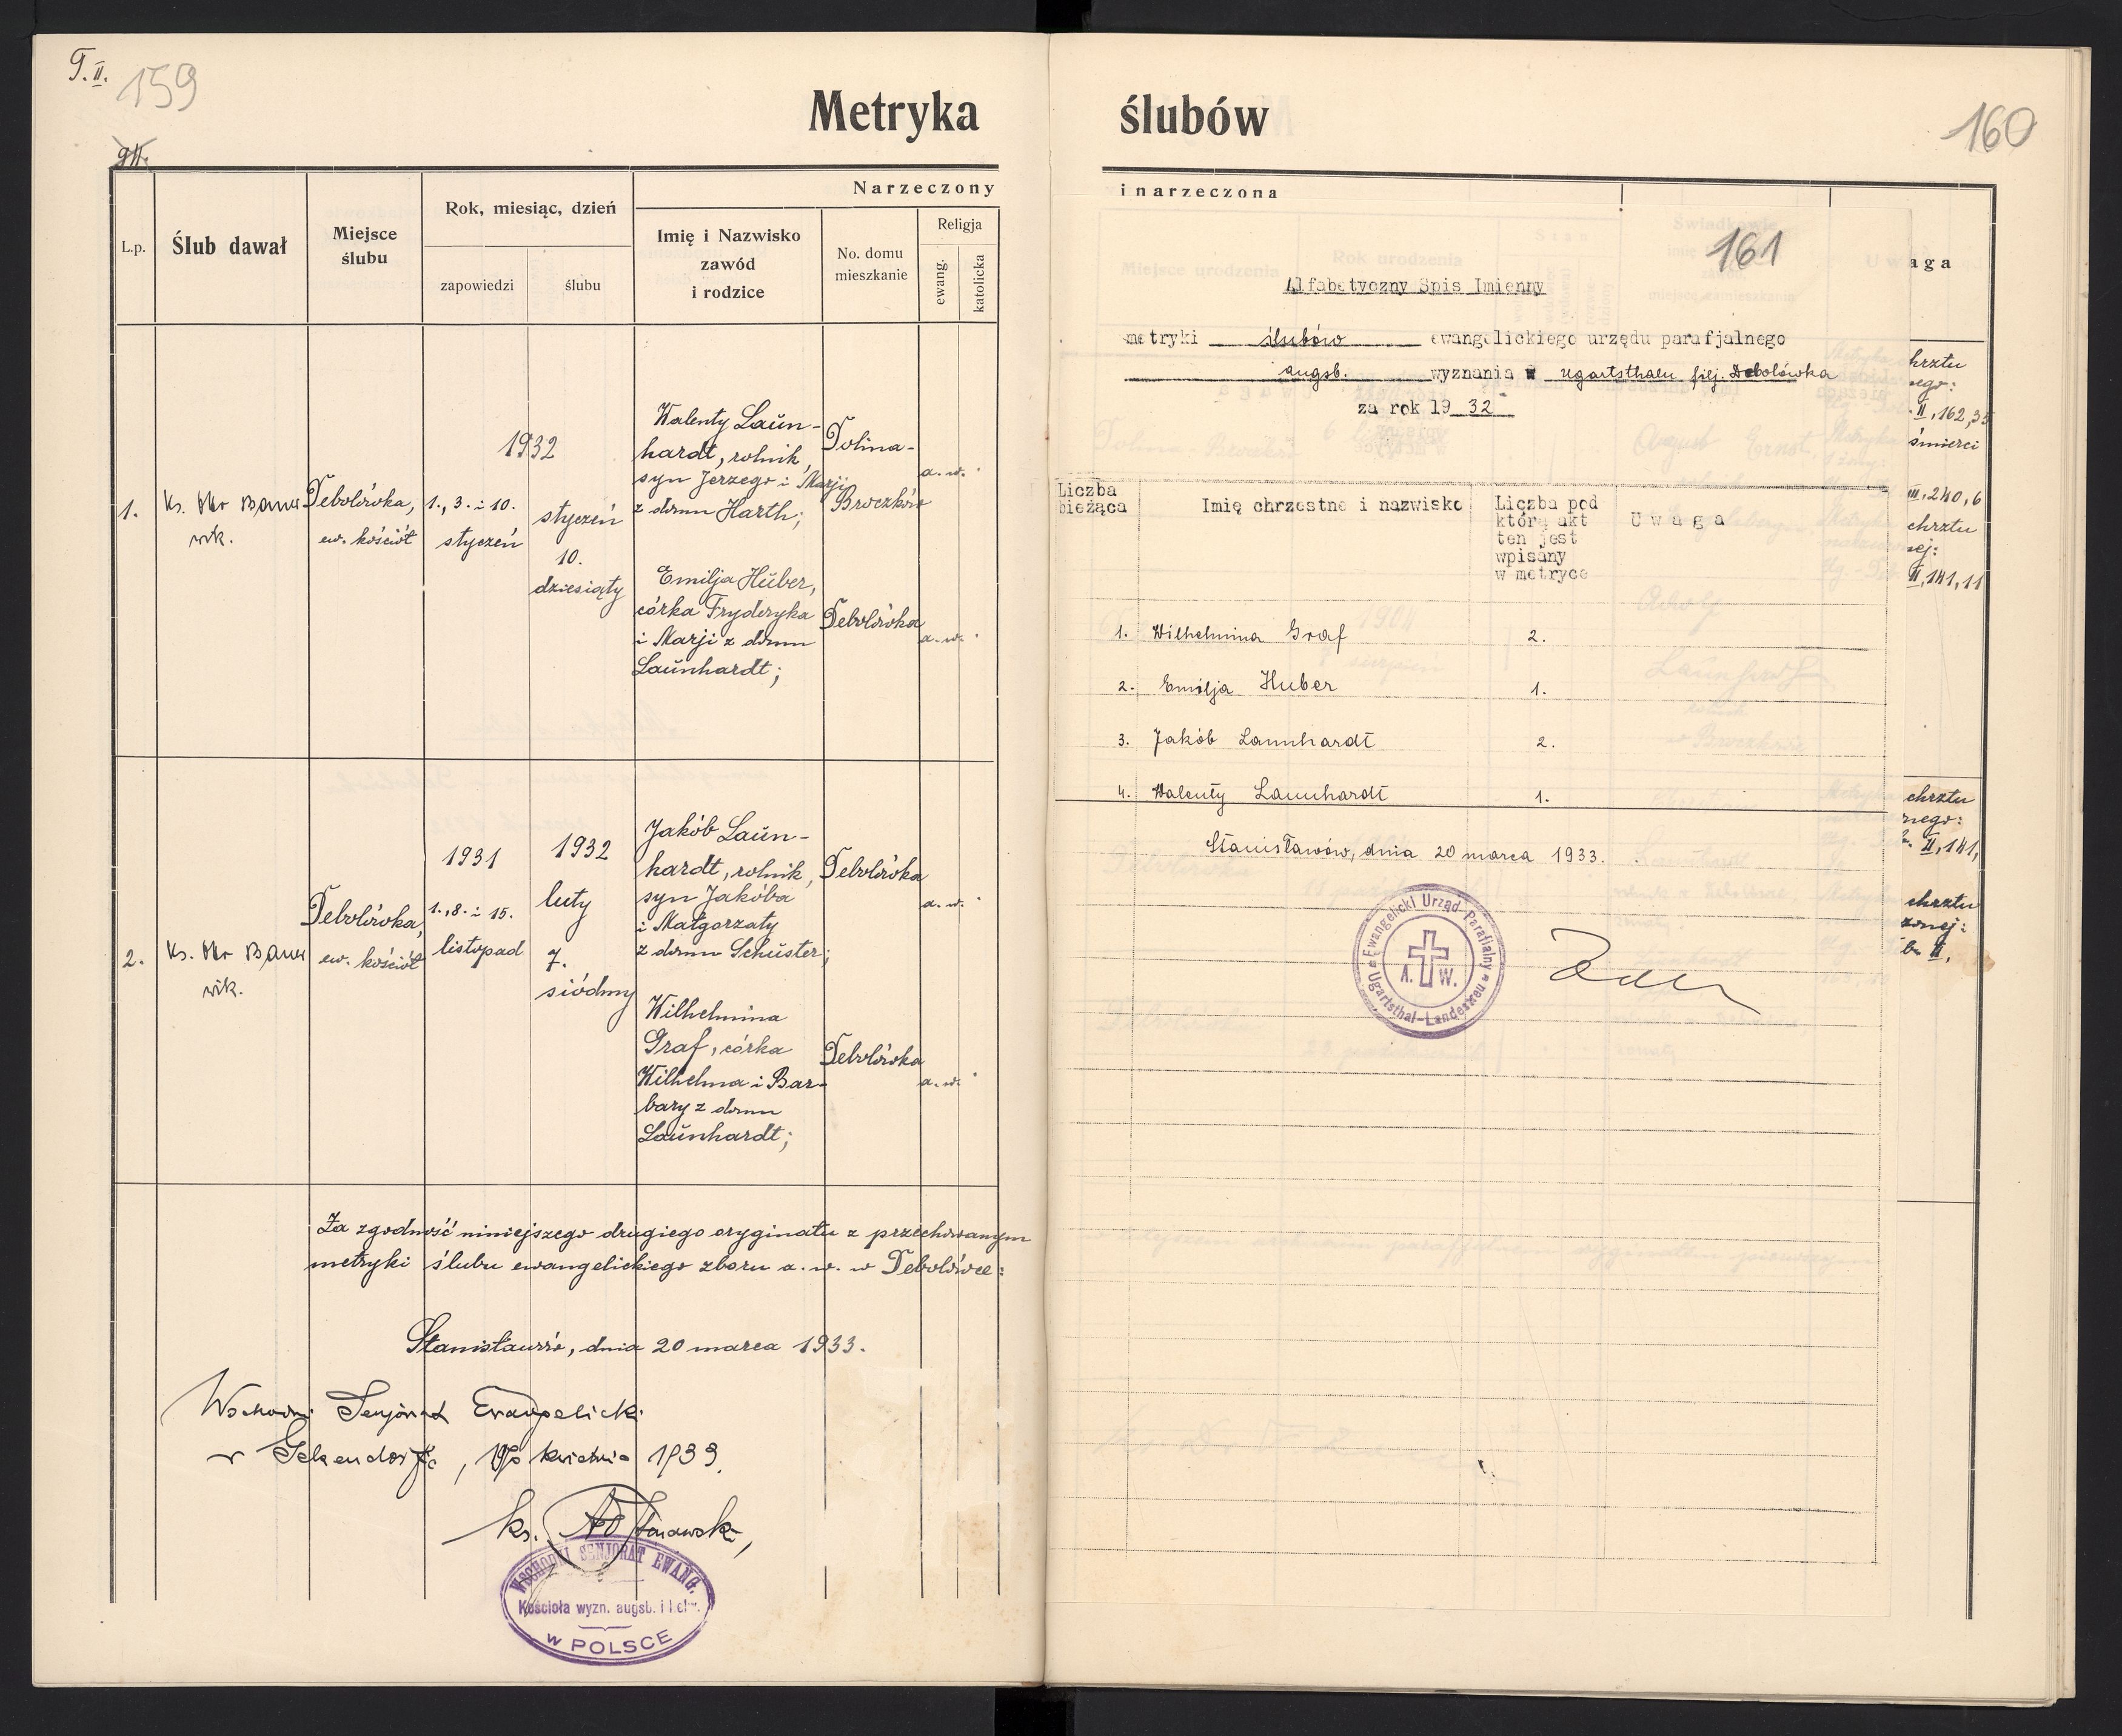 T. II.
159
Metryka
L.p.
Ślub dawał
Miejsce
ślubu
Rok, miesiąc, dzień
zapowiedzi
ślubu
Narzeczony
Imię i Nazwisko
zawód
i rodzice
No. domu
mieszkanie
Religja
ewang.
katolicka
1.
Ks.
wik.
Debolówka,
ew. kościół
1., 3. i 10.
styczeń
1932
styczeń
10.
dziesiąty
Walenty Laŭn-
hardt, rolnik,
syn Jerzego i Marji
z domu Harth;
Dolina-
Broczków
a. w.
Emilja Hŭber,
córka Fryderyka
i Marji z domu
Laŭnhardt;
Debolówka
a. w.
2.
Ks.
wik.
Debolówka,
ew. kościół
1931
1., 8. i 15.
listopad
1932
luty
7.
siódmy
Jakób Laŭn-
hardt, rolnik,
syn Jakóba
i Małgorzaty
z domu Schŭster;
Debolówka
a. w.
Wilhelmina
Graf, córka
Wilhelma i Bar-
bary z domu
Laŭnhardt;
Debolówka
a. w.
Za zgodność niniejszego drugiego oryginału z przechowanym
metryki ślubu ewangelickiego zboru a. w. w Debolówce:
Stanisławów, dnia 20 marca 1933.
Wschodni Senjorat Ewangelicki
w Gelsendorfie, kwietnia 1933.
ks.
WSCHODNI SENJORAT EWANG.
Kościoła wyzn. augsb. i helw.
w POLSCE
ślubów
160
i narzeczona
161
Uwaga
Alfabetyczny Spis Imienny
metryki ślubów ewangelickiego urzędu parafjalnego
augsb. wyznania w Ugartsthalu filj. Debolówka
za rok 19 32
Liczba
bieżąca
Imię chrzestne i nazwisko
Liczba pod
którą akt
ten jest
wpisany
w metryce
Uwaga
1. Wilhelmina Graf 2.
2. Emilja Huber 1.
3. Jakób Launhardt 2.
4. Walenty Launhardt 1.
Stanisławów, dnia 20 marca 1933.
Ewangelicki Urząd Parafialny
A. W.
Ugartsthal-Landestreu
hrztu
ego:
II, 162, 35
śmierci
III, 240, 6
chrztu
ej:
II, 141, 11
chrztu
nego:
II, 141,
chrztu
zonej:
b. II,